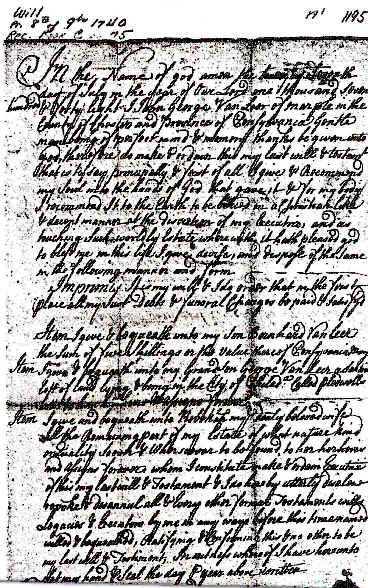 Will
No 1195
In the Name of god amen the twenty seventh
day of July in the year of our Lord one thousand seven
hundred & forty Eight I John George Van Leer of marple in the
County of Chester and Province of Pensylvania
mind & memory thanks be given unto
god therefore do make & ordain this my last will & testament
that is to say principally & first of all I give & Recommend
my Soul into the hands of God that gave it & for my body
I recommend it to the Earth to be buried in a
& decent manner at the discretion of my Executors, and as
touching such worldly Estate wherewith it hath pleased god
to bless me in this life I give devise, and dispose of the same
in the following manner and form
Imprimis It is my will & I do order that in the first
place all my Just Debts & funeral Charges be paid & satisfied
Item I give & bequeath unto my Son Bernhard Van Leer
the Sum of five shillings or the value thereof
Item I give & bequeath unto my Grandson George Van Leer a
lott of land lying & being in the City of
Item I give and bequeath unto my dearly beloved wife
all the Remaining part of my Estate of what nature kind
or quality soever & wheresoever to be found, to her her heirs
and assigns forever whom I constitute make & ordain
of this my last will & Testament & I do hereby utterly disalow
revoke & disannul all & Every other former Testaments wills
Legacies & Executors by me in any ways before this time named
willed & bequeathed, Ratifying & Confirming this & no other to be
my last will & Testament. In witness whereof I have hereunto
set my hand & seal the day & year above written